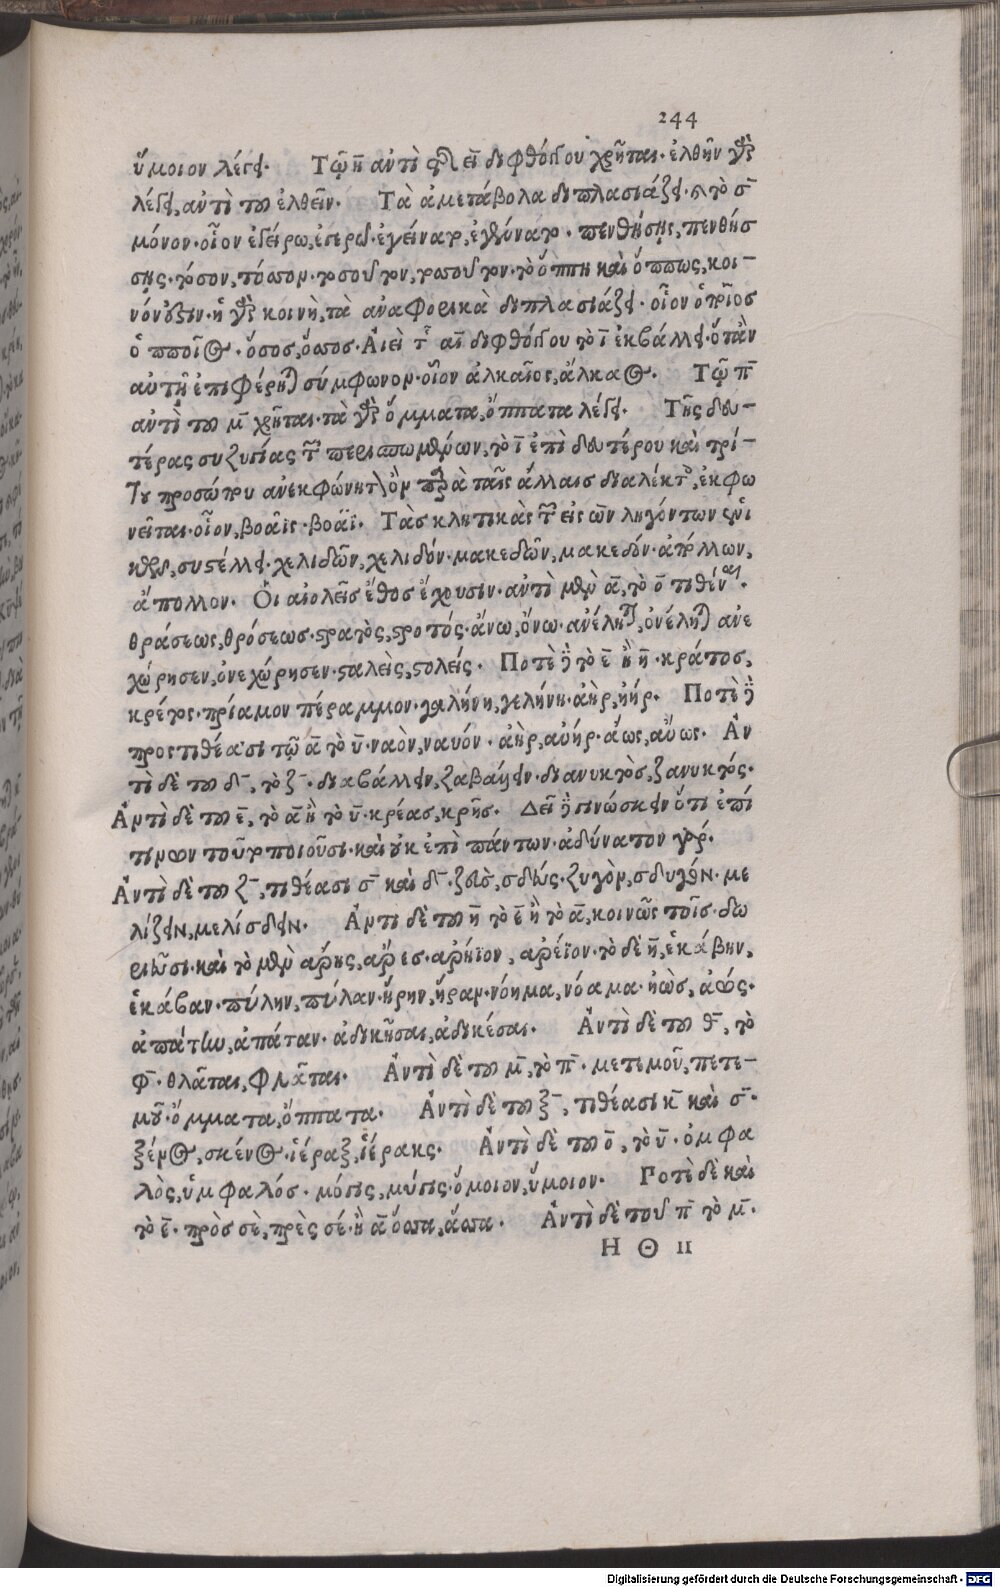 244
ὔμοιον λέγει. Τῷ η̄ ἀντὶ τῆς ει̅ διφθόγγου χρῆται. ἐλθῆν γὰρ
λέγει, ἀντὶ τοῦ ἐλθεῖν. Τὰ ἀμετάβολα διπλασιάζει. καὶ τὸ σ̅
μόνον. οἷον ἐγείρω, ἐγερρω. ἐγείνατο, ἐγέννατο. πενθήσῃς, πενθήσ
σῃς. τόσον, τόσσον. τοσοῦτον, τοσσοῦτον. τὸ ὅππη καὶ ὅππως, κοι-
νόν ὄξιν. ἡ γὰρ κοινὴ, τὰ ἀναφορικὰ διπλασιάζει. οἷον ὁποῖος
ὁπποῖος. ὅσος, ὅσσος. Αἰεὶ τῆς αι̅ διφθόγγου τὸ ι̅ ἐκβάλλει. ὅταν
αὐτῇ ἐπιφέρηται σύμφωνον. οἷον ἀλκαῖος, ἄλκαος. Τῷ π̅
ἀντὶ τοῦ μ̅ χρῆται. τὰ γὰρ ὄμματα, ὄππατα λέγει. Τῆς δευ-
τέρας συζυγίας τῶν περισπωμένων, τὸ ι̅ ἐπὶ δευτέρου καὶ τρί-
του προσώπου ἀνεκφώνητον ὂν παρὰ ταῖς ἄλλαις διαλέκτοις, ἐκφω
νεῖται. οἷον, βοᾶϊς. βοάϊ. Τὰς κλητικὰς τῶν εἰς ων ληγόντων
συστέλλει. χελιδὼν, χελιδόν. μακεδὼν, μακεδόν. ἀπόλλων,
ἄπολλον. Οἱ αἰολεῖς ἔθος ἔχουσιν. ἀντὶ μὲν ᾱ, τὸ ο̅ τιθέναι.
θράσεως, θρόσεως. στρατὸς, στροτός. ἄνω, ὄνω. ἀνέληται, ὀνέληται ἀνε
χώρησεν, ὀνεχώρησεν. σταλεὶς, στολείς. Ποτὲ δὲ τὸ ε̅ ἢ η̅. κράτος,
κρέτος. πρίαμον πέραμμον. γαλήνη, γελήνη. ἀὴρ, ἠήρ. Ποτὲ δὲ
προστιθέασι τῷ ᾱ τὸ υ̅. ναὸν, ναυόν. ἀὴρ, αὐήρ. ἄως, αὔως. Ἀν
τὶ δὲ τοῦ δ̅, τὸ ζ̅. διαβάλλειν, ζαβάλλειν. διανυκτὸς, ζανυκτός.
Ἀντὶ δὲ τοῦ ε̅, τὸ ᾱ ἢ τὸ υ̅. κρέας, κρῆς. Δεῖ δὲ γινώσκειν ὅτι ἐπί
τινων τοῦτο ποιοῦσι. καὶ οὐκ ἐπὶ πάντων. ἀδύνατον γάρ.
Ἀντὶ δὲ τοῦ ζ̅, τιθέασι σ̅ καὶ δ̅. ζεὺς, σδεύς. ζυγὸν, σδυγόν. με
λίζειν, μελίσδειν. Ἀντὶ δὲ τοῦ η̅ τὸ ε̅ ἢ τὸ ᾱ, κοινῶς τοῖς. δω
ριεῦσι. καὶ τὸ μὲν ἄρης, ἄρες. ἀρήϊον, ἀρέϊον. τὸ δὲ η̅, ἑκάβην,
ἑκάβαν. πύλην, πύλαν. ἥρην, ἥραν. νόημα, νόαμα. ἠὼς, ἀώς.
ἀπάτην, ἀπάταν. ἀδικῆσαι, ἀδικέσαι. Ἀντὶ δὲ τοῦ θ̅, τὸ
φ̅. θλᾶται, φλᾶται. Ἀντὶ δὲ τοῦ μ̅, τὸ π̅. μετεμοῦ, πετε-
μοῦ. ὄμματα, ὄππατα. Ἀντὶ δὲ τοῦ ξ̅, τιθέασι κ̅ καὶ σ̅.
ξένος, σκένος. ἱέραξ, ἱέρακς. Ἀντὶ δὲ τοῦ ο̅, τὸ υ̅. ὀμφα
λὸς, ὑμφαλός. μόγις, μύγις. ὅμοιον, ὔμοιον. Γοτὲ δὲ καὶ
τὸ ε̅. πρὸς σὲ, πρὲς σέ. ἢ ᾱ ὅσσα, ἄσσα. Ἀντὶ δὲ τοῦ π̅ τὸ μ̅.
Η Θ II
Digitalisierung gefördert durch die Deutsche Forschungsgemeinschaft - DFG